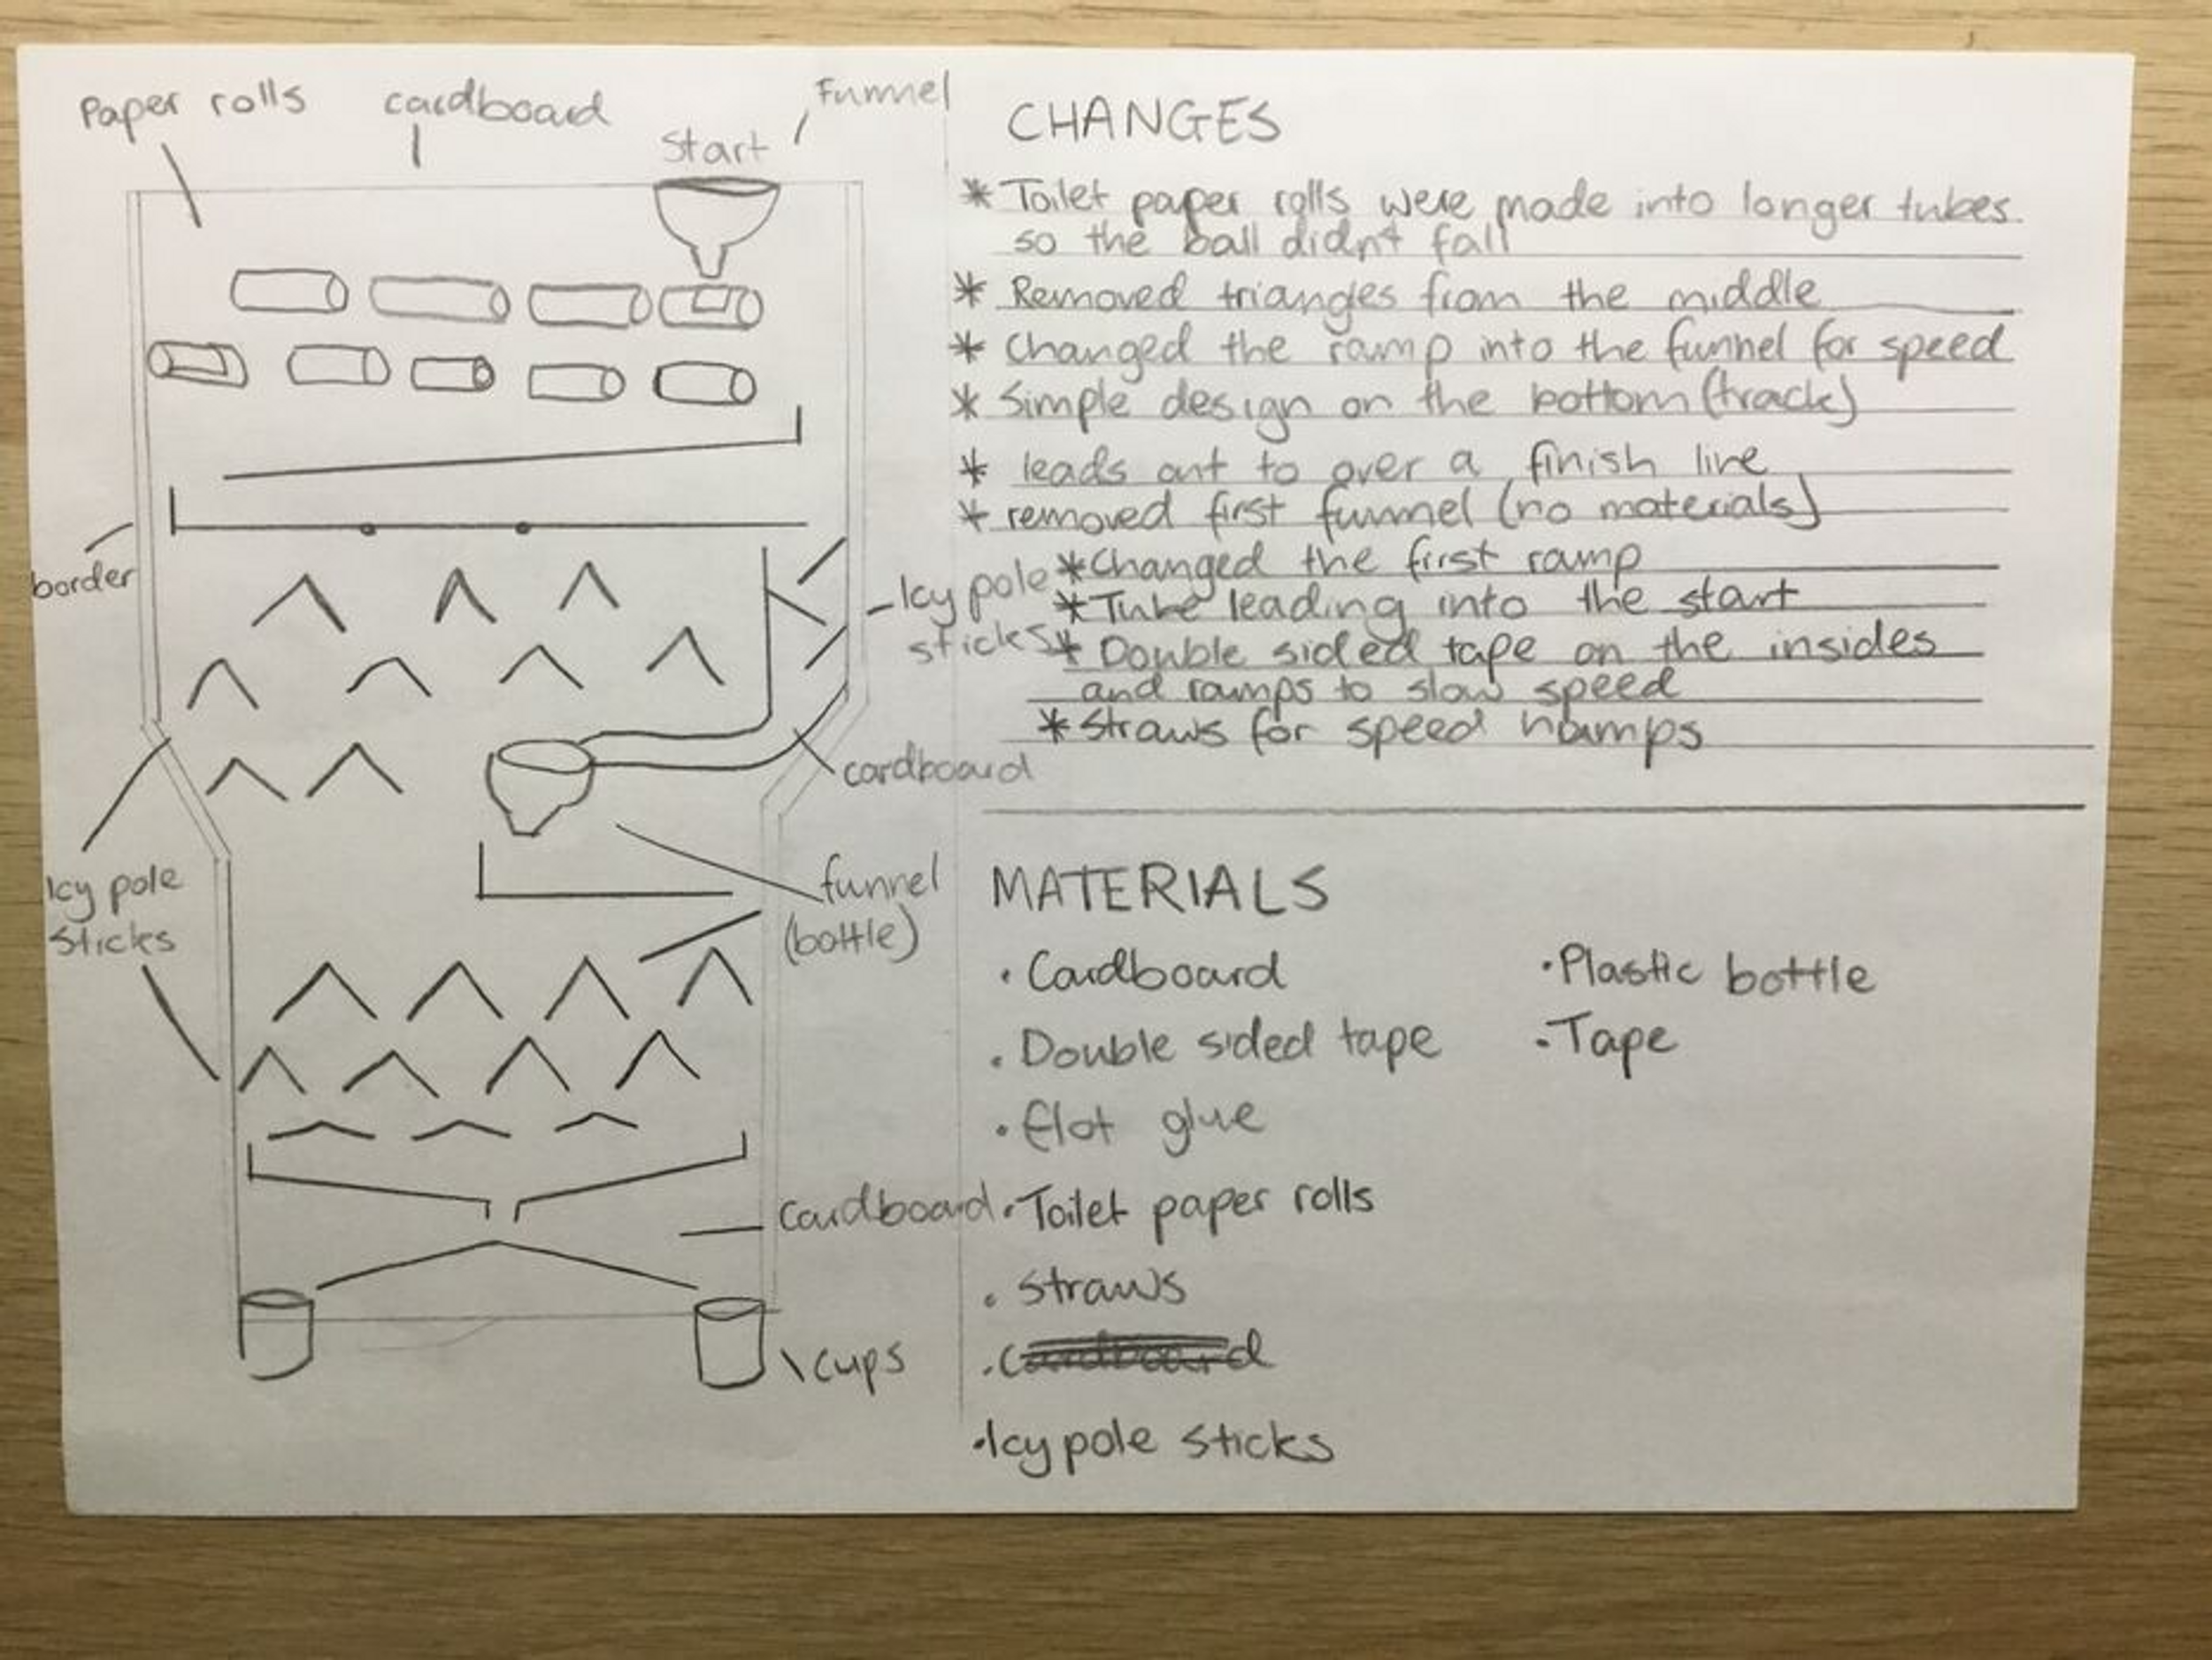 Paper rolls
cardboard
Funnel
Start
border
Icy pole
sticks
cardboard
Icy pole
sticks
funnel
(bottle)
cardboard
cups
CHANGES
* Toilet paper rolls were made into longer tubes
so the ball didnt fall
* Removed triangles from the middle
* Changed the ramp into the funnel for speed
* Simple design on the bottom (track)
* leads out to over a finish line
* removed first funnel (no materials)
* Changed the first ramp
* Tube leading into the start
* Double sided tape on the insides
and ramps to slow speed
* Straws for speed humps
MATERIALS
· Cardboard
· Double sided tape
· glue
· Toilet paper rolls
· Straws
· Cardboard
· Icy pole sticks
· Plastic bottle
· Tape